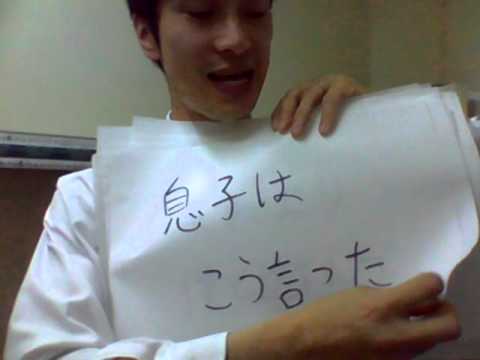 息子は
こう言った